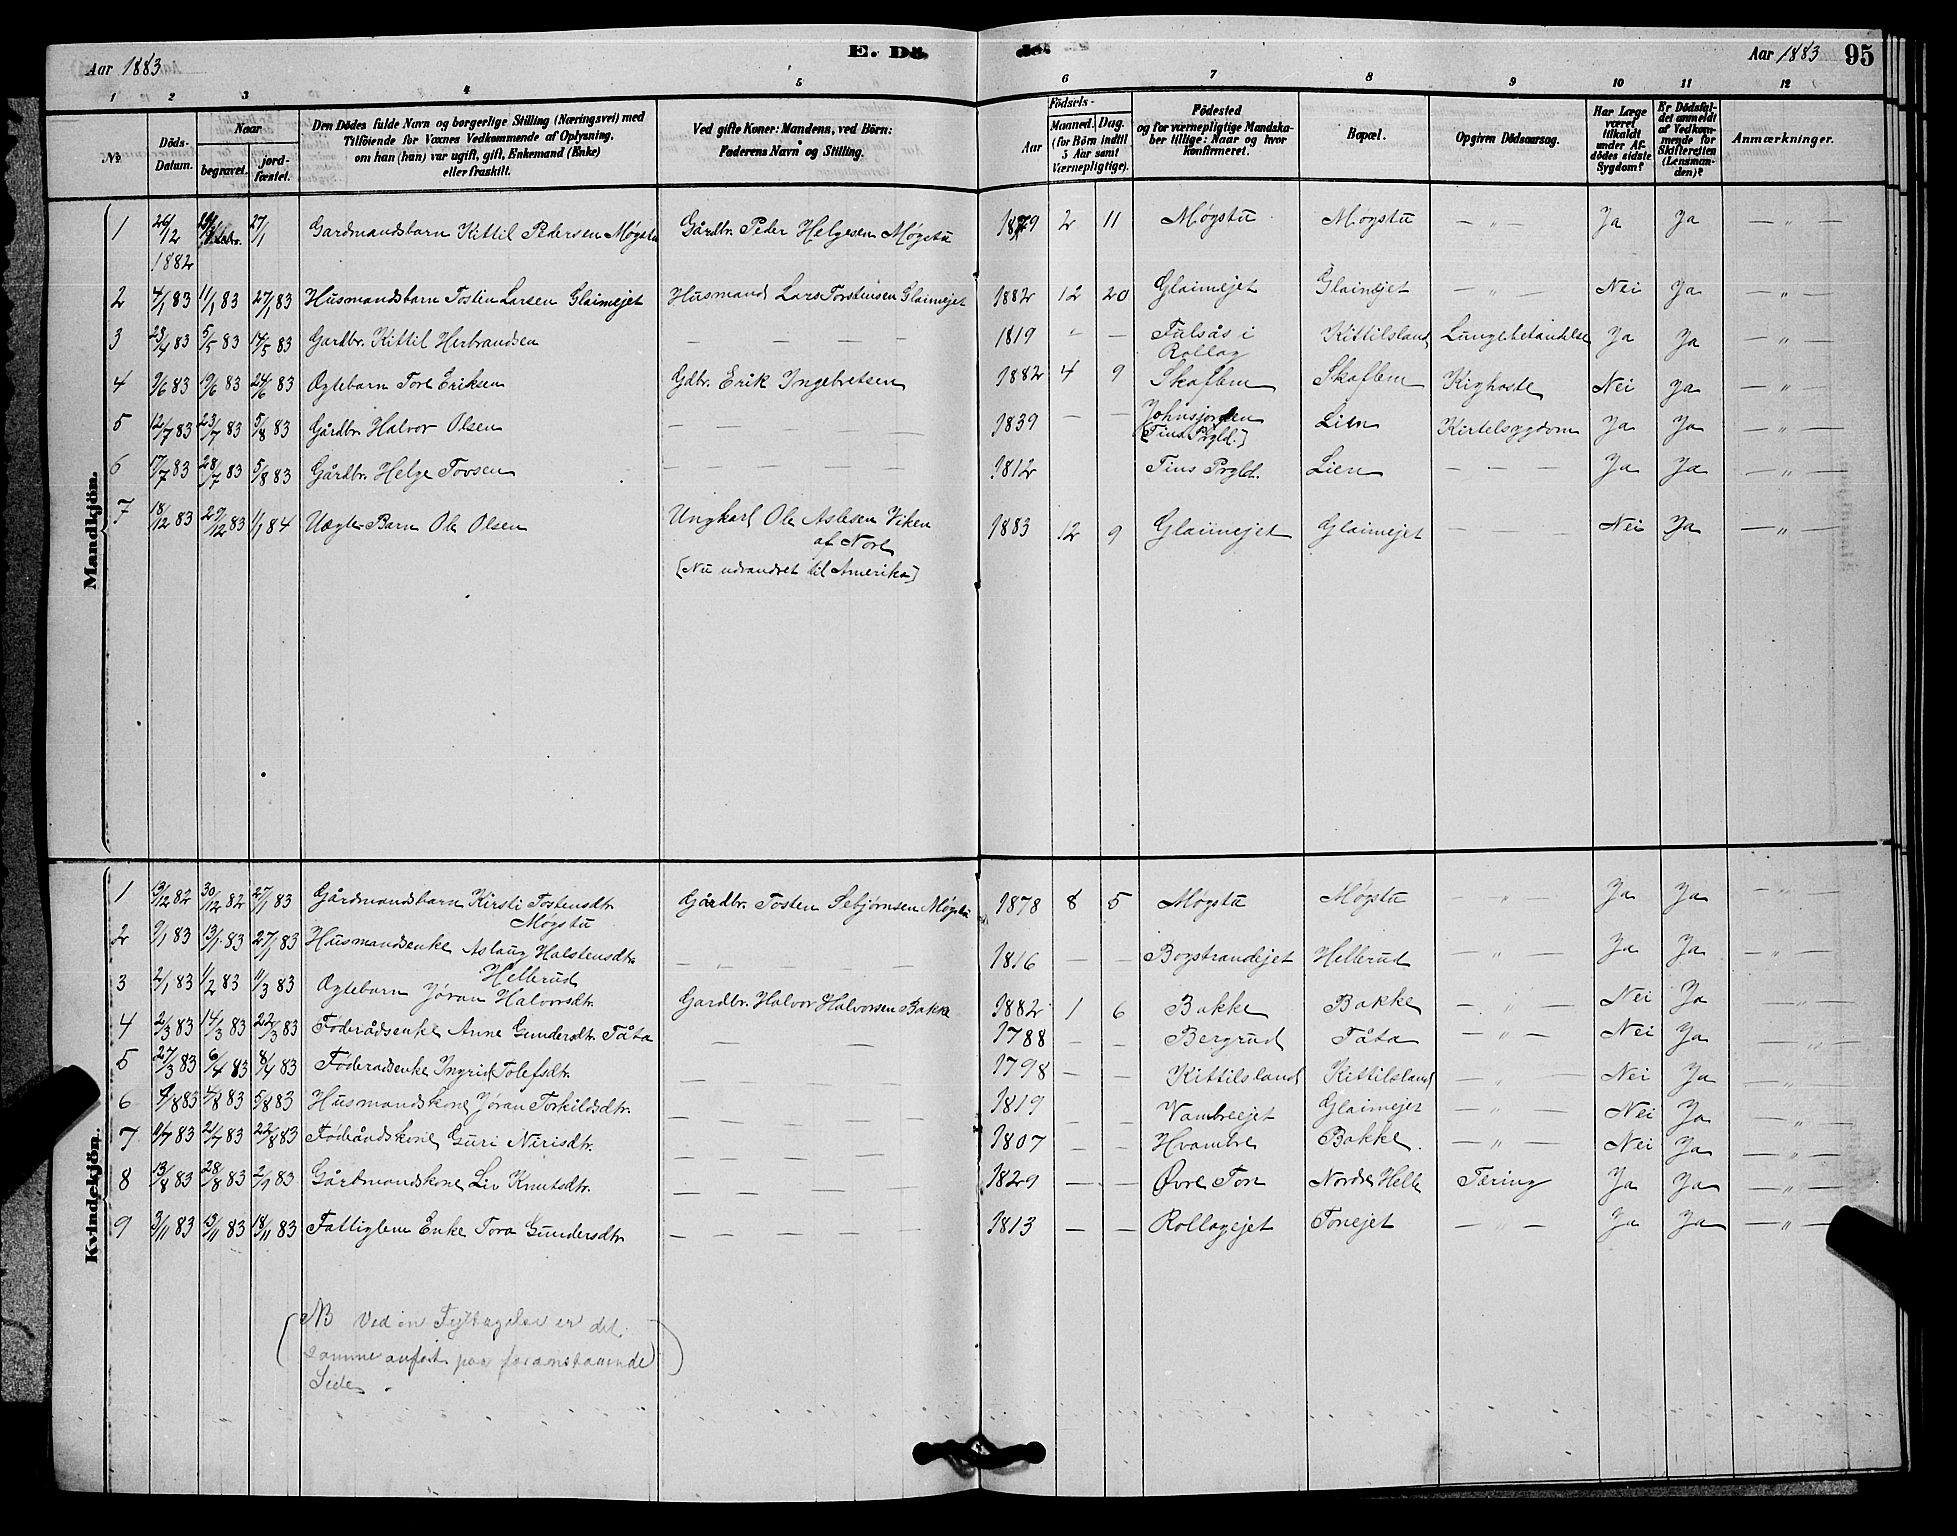 Aar 1883.
E. Dö
de.
Aar 1883
95
1 2 3 4 5 6 7 8 9 10 11 12
No.
Döds-Datum.
Naar
begravet.
jord-fæstet.
Den Dödes fulde Navn og borgerlige Stilling (Næringsvei) med
Tilföiende for Voxnes Vedkommende af Oplysning,
om han (hun) var ugift, gift, Enkemand (Enke)
eller fraskilt.
Ved gifte Koner: Mandens, ved Börn:
Faderens Navn og Stilling.
Födsels-
Aar
Maaned. Dag.
(for Börn indtil
5 Aar samt
Værnepligtige).
Födested
og for værnepligtige Mandska-
ber tillige: Naar og hvor
konfirmeret.
Bopæl.
Opgiven Dödsaarsag.
Har Læge
været
tilkaldt
under Af-
dödes sidste
Sygdom?
Er Dödsfal-
det anmeldt
af Vedkom-
mende for
Skifteretten
(Lensman-
den)?
Anmærkninger.
Mandkjön.
1 26/12 1882 27/1 Gardmandsbarn Kittil Pedersen Møgstu Gårdbr. Peder Helgesen Møgstu 1879 2 11 Møgstu Møgstu — „ — Ja Ja
2 4/1 83 11/1 83 27/1 83 Husmandsbarn Tosten Larsen Glaimejet Husmand Lars Torstensen Glaimejet 1882 12 20 Glaimejet Glaimejet — „ — Nei Ja — „ —
3 23/4 83 5/5 83 14/5 83 Gardbr. Kittil Herbrandsen — — — — 1819 „ — Fulsås i Rollag Kittilsland Lungebetændelse Ja Ja — „ —
4 9/6 83 19/6 83 24/6 83 Ogtebarn Tore Eriksen Gdbr. Erik Ingebretsen 1882 4 9 Skaflem Skaflem Kighoste Nei Ja — „ —
5 12/7 83 23/7 83 5/8 83 Gårdbr. Halvor Olsen — — — — 1839 — — Johnsjorden [Tins Prgld.] Lien Kirtelsygdom Ja Ja — „ —
6 17/7 83 28/7 83 5/8 83 Gårdbr. Helge Tovsen — — — — 1812 Tins Prgld. Lien — — — Ja Ja — „ —
7 18/12 83 29/12 83 1/1 84 Uægte Barn Ole Olsen Ungkarl Ole Aslesen Viken 1883 12 9 Glaimejet Glaimejet — — Nei Ja — „ —
af Nore
[Nu udvandret til Amerika]
Kvindekjön.
1 13/12 82 30/12 82 27/1 83 Gårdmandsbarn Kirsti Tostensdtr. Møgstu Gårdbr. Tosten Sebjørnsen Møgstu 1878 8 5 Møgstu Møgstu — „ — Ja Ja — „ —
2 9/1 83 13/1 83 27/1 83 Husmandsenke Aslaug Halstensdtr. Hellerud — „ — — 1816 — — Bogstrandejet Hellerud — „ — Ja Ja — „ —
3 2/1 83 1/2 83 11/3 83 Ogtebarn Jøran Halvorsdtr. Gardbr. Halvor Halvorsen Bakke 1882 1 6 Bakke Bakke — „ — Nei Ja — „ —
4 2/3 83 14/3 83 22/3 83 Føderådsenke Anne Gundersdtr. Tåta — — 1788 — — Bergrud Tåta — „ — Nei Ja — „ —
5 27/3 83 6/4 83 8/4 83 Føderadsenke Ingrid Tolefsdtr. — — — — 1798 — — Kittilsland Kittilsland — „ — Nei Ja — „ —
6 83 4/8 83 5/8 83 Husmandskone Jøran Torkildsdtr. — — — — 1819 — — Vambreejet Glaimejet — „ — Nei Ja — „ —
7 83 21/7 83 22/8 83 Føderådskone Guri Nirisdtr. — — — — 1807 — — Hvambre Bakke. — „ — Nei Ja — „ —
8 13/8 83 28/8 83 2/9 83 Gårdmandskone Liv Knutsdtr. — — — — 1829 — — Øvre Ton Nordre Helle Tæring Ja Ja — „ —
9 3/11 83 13/11 83 18/11 83 Fattiglem Enke Tora Gundersdtr. — — — — 1813 — — Rollagejet Tonejet — „ — Ja Ja — „ —
(NB Ved en Fejltagelse er det
samme anført paa foranstaaende)
Side.